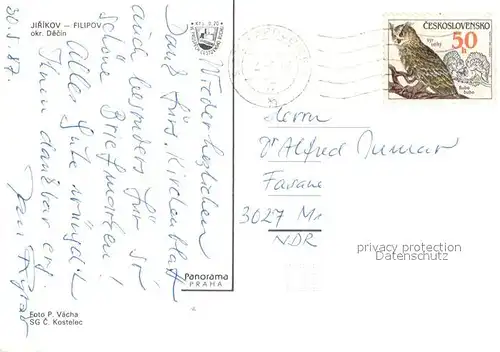 JIŘÍKOV — FILIPOV
okr. Děčín
30.5.87.
Wieder herzlichen
Dank fürs Kirchenblatt
auch besonders für
schöne Briefmarken!
Alles Gute wünscht
Ihnen dankbar erg.
Foto P. Vácha
SG Č. Kostelec
Panorama
PRAHA
ČESKOSLOVENSKO
50 h
Výr velký
Bubo
bubo
Herrn
Alfred
3027
NDR
privacy protection
Datenschutz